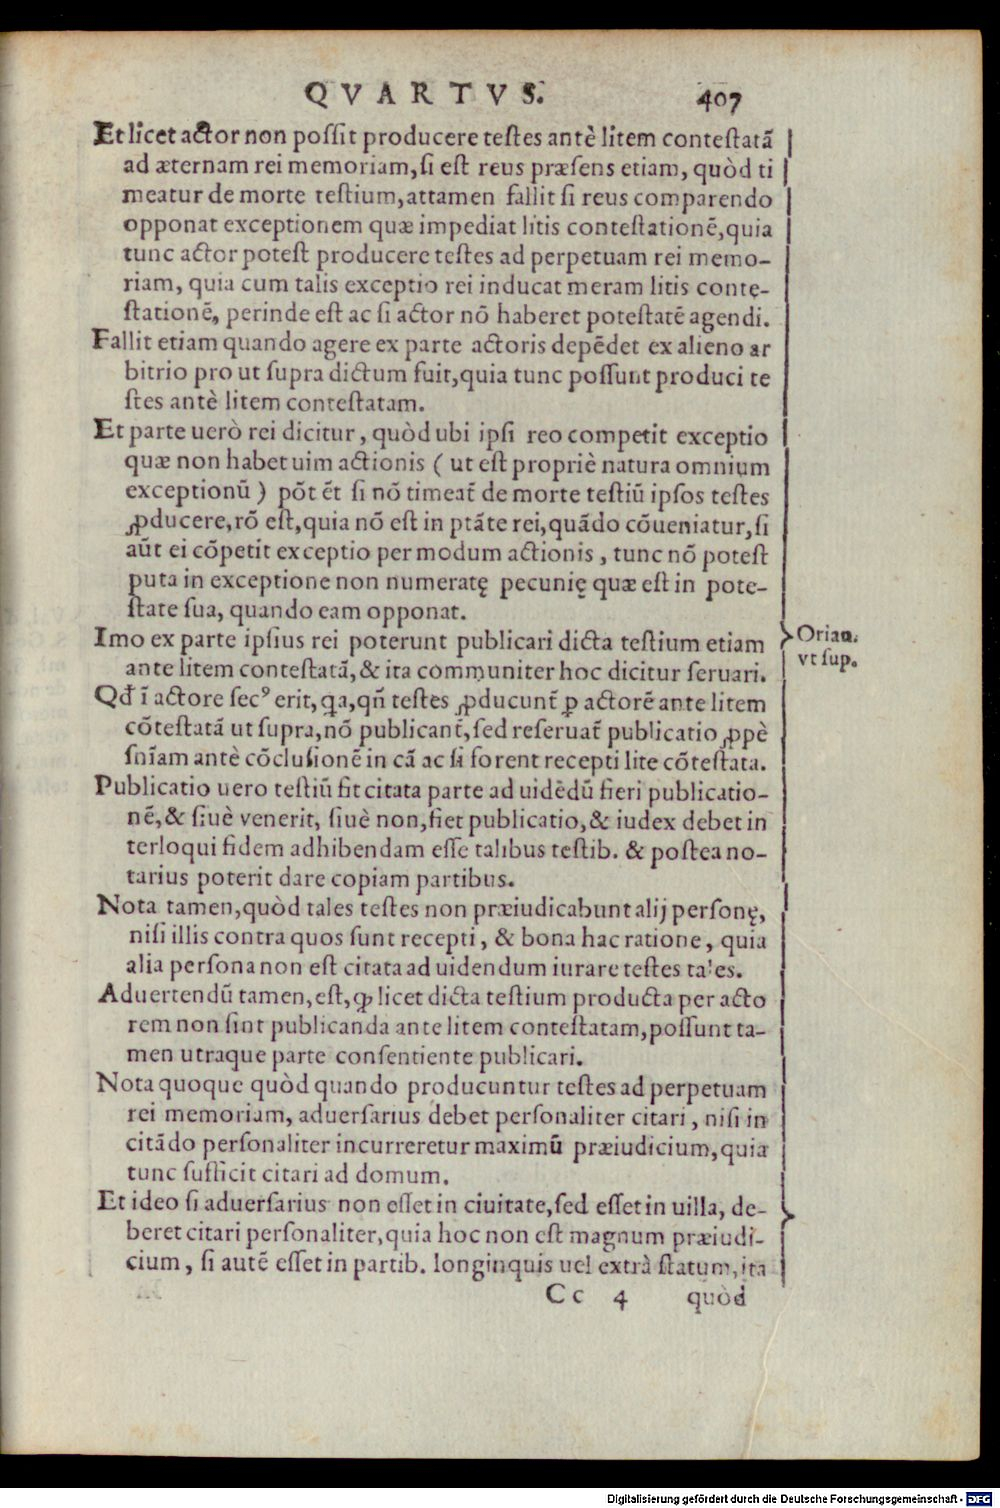 QVARTVS. 407
Et licet actor non possit producere testes antè litem contestatã
ad æternam rei memoriam, si est reus præsens etiam, quòd ti
meatur de morte testium, attamen fallit si reus comparendo
opponat exceptionem quæ impediat litis contestationẽ, quia
tunc actor potest producere testes ad perpetuam rei memo-
riam, quia cum talis exceptio rei inducat meram litis contę-
stationẽ, perinde est ac si actor nõ haberet potestatẽ agendi.
Fallit etiam quando agere ex parte actoris depẽdet ex alieno ar
bitrio pro ut supra dictum fuit, quia tunc possunt produci te
stes antè litem contestatam.
Et parte uerò rei dicitur, quòd ubi ipsi reo competit exceptio
quæ non habet uim actionis (ut est propriè natura omnium
exceptionũ) põt ẽt si nõ timeat̃ de morte testiũ ipsos testes
ꝓducere, rõ est, quia nõ est in ptãte rei, quãdo cõueniatur, si
aũt ei cõpetit exceptio per modum actionis, tunc nõ potest
puta in exceptione non numeratę pecunię quæ est in pote-
state sua, quando eam opponat.
Imo ex parte ipsius rei poterunt publicari dicta testium etiam
ante litem contestatã, & ita communiter hoc dicitur seruari.
Orian.
vt sup.
Qđ ĩ actore secꝰ erit, ꝗa, qñ testes ꝓducunt̃ ꝑ actorẽ ante litem
cõtestatã ut supra, nõ publicant̃, sed reseruat̃ publicatio ꝓppè
sñiam antè cõclusionẽ in cã ac si forent recepti lite cõtestata.
Publicatio uero testiũ fit citata parte ad uidẽdũ fieri publicatio-
nẽ, & siuè venerit, siuè non, fiet publicatio, & iudex debet in
terloqui fidem adhibendam esse talibus testib. & postea no-
tarius poterit dare copiam partibus.
Nota tamen, quòd tales testes non præiudicabunt alij personę,
nisi illis contra quos sunt recepti, & bona hac ratione, quia
alia persona non est citata ad uidendum iurare testes tales.
Aduertendũ tamen, est, ꝙ licet dicta testium producta per acto
rem non sint publicanda ante litem contestatam, possunt ta-
men utraque parte consentiente publicari.
Nota quoque quòd quando producuntur testes ad perpetuam
rei memoriam, aduersarius debet personaliter citari, nisi in
citãdo personaliter incurreretur maximũ præiudicium, quia
tunc sufficit citari ad domum.
Et ideo si aduersarius non esset in ciuitate, sed esset in uilla, de-
beret citari personaliter, quia hoc non est magnum præiudi-
cium, si autẽ esset in partib. longinquis uel extrà statum, ita
Cc 4 quòd
Digitalisierung gefördert durch die Deutsche Forschungsgemeinschaft - DFG